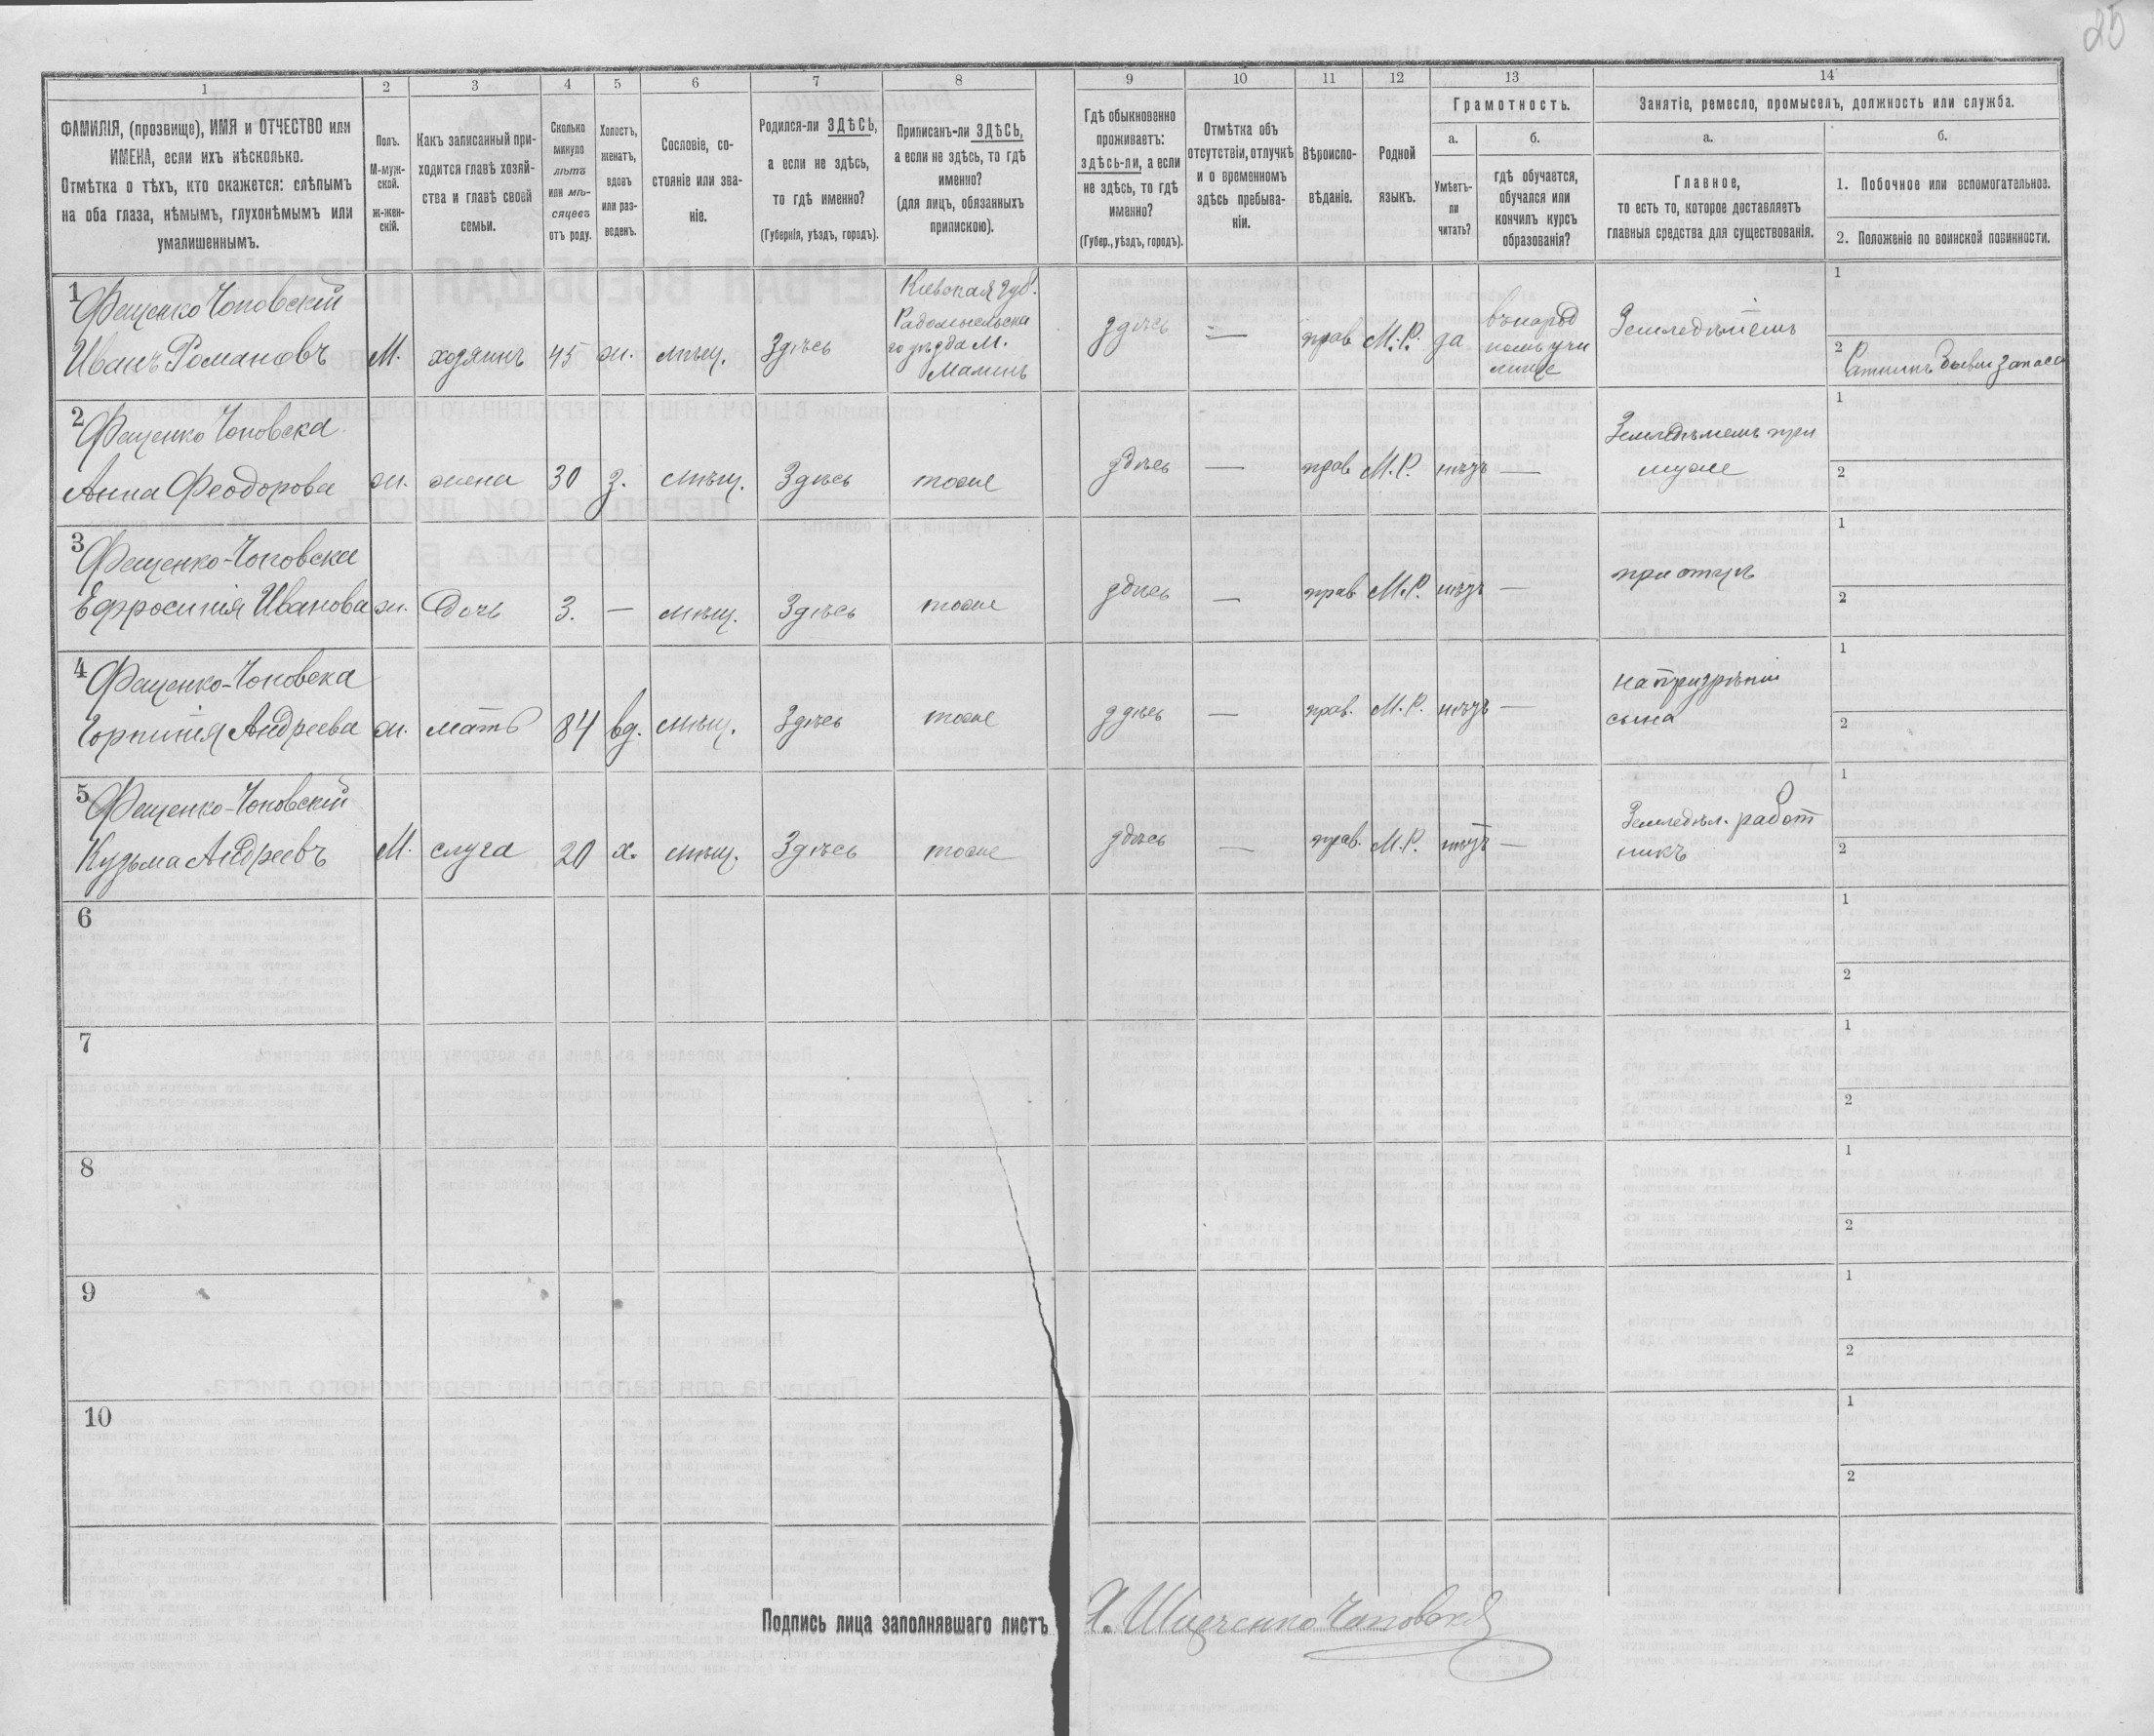 25
1
2
3
4
5
6
7
8
9
10
11
12
13
14
ФАМИЛІЯ, (прозвище), ИМЯ и ОТЧЕСТВО или
ИМЕНА, если ихъ нѣсколько.
Отмѣтка о тѣхъ, кто окажется: слѣпымъ
на оба глаза, нѣмымъ, глухонѣмымъ или
умалишеннымъ.
Полъ.
М-муж-
ской.
ж-жен-
скій.
Какъ записанный при-
ходится главѣ хозяй-
ства и главѣ своей
семьи.
Сколько
минуло
лѣтъ
или мѣ-
сяцевъ
отъ роду.
Холостъ,
женатъ,
вдовъ
или раз-
веденъ.
Сословіе, со-
стояніе или зва-
ніе.
Родился-ли ЗДѢСЬ,
а если не здѣсь,
то гдѣ именно?
(Губернія, уѣздъ, городъ).
Приписанъ-ли ЗДѢСЬ,
а если не здѣсь, то гдѣ
именно?
(для лицъ, обязанныхъ
припискою).
Гдѣ обыкновенно
проживаетъ:
здѣсь-ли, а если
не здѣсь, то гдѣ
именно?
(Губер., уѣздъ, городъ).
Отмѣтка объ
отсутствіи, отлучкѣ
и о временномъ
здѣсь пребыва-
ніи.
Вѣроиспо-
вѣданіе.
Родной
языкъ.
Грамотность.
а.
б.
Умѣетъ-
ли
читать?
гдѣ обучается,
обучался или
кончилъ курсъ
образованія?
Занятіе, ремесло, промыселъ, должность или служба.
а.
б.
Главное,
то есть то, которое доставляетъ
главныя средства для существованія.
1. Побочное или вспомогательное.
2. Положеніе по воинской повинности.
1
Фещенко Чоповскій
Иванъ Романовъ
М.
хозяинъ
45
ж.
мѣщ.
Здѣсь
Кіевская губ.
Радомысльска
го уѣзда М.
Малинъ
здѣсь
—
прав
М.Р.
да
въ народ
номъ учи
лище
Земледѣлецъ
1
2
Ратникъ бывш запаса
2
Фещенко Чоповска
Анна Феодорова
ж.
жена
30
з.
мѣщ.
Здѣсь
тоже
здѣсь
—
прав
М.Р.
нѣтъ
—
при
муже
1
2
3
Фещенко-Чоповска
Ефросинія Иванова
ж.
Дочь
3.
—
мѣщ.
Здѣсь
тоже
здѣсь
—
прав
М.Р.
нѣтъ
—
при отцѣ
1
2
4
Фещенко-Чоповска
Горпинія Андреева
ж.
мать
84
вд.
мѣщ.
Здѣсь
тоже
здѣсь
—
прав.
М.Р.
нѣтъ
—
на призрѣніи
сына
1
2
5
Фещенко-Чоповскій
Кузьма Андреевъ
М.
слуга
20
х.
мѣщ.
Здѣсь
тоже
здѣсь
—
прав.
М.Р.
нѣтъ
—
Земледѣл. работ
никъ
1
2
6
1
2
7
1
2
8
1
2
9
1
2
10
1
2
Подпись лица заполнявшаго листъ